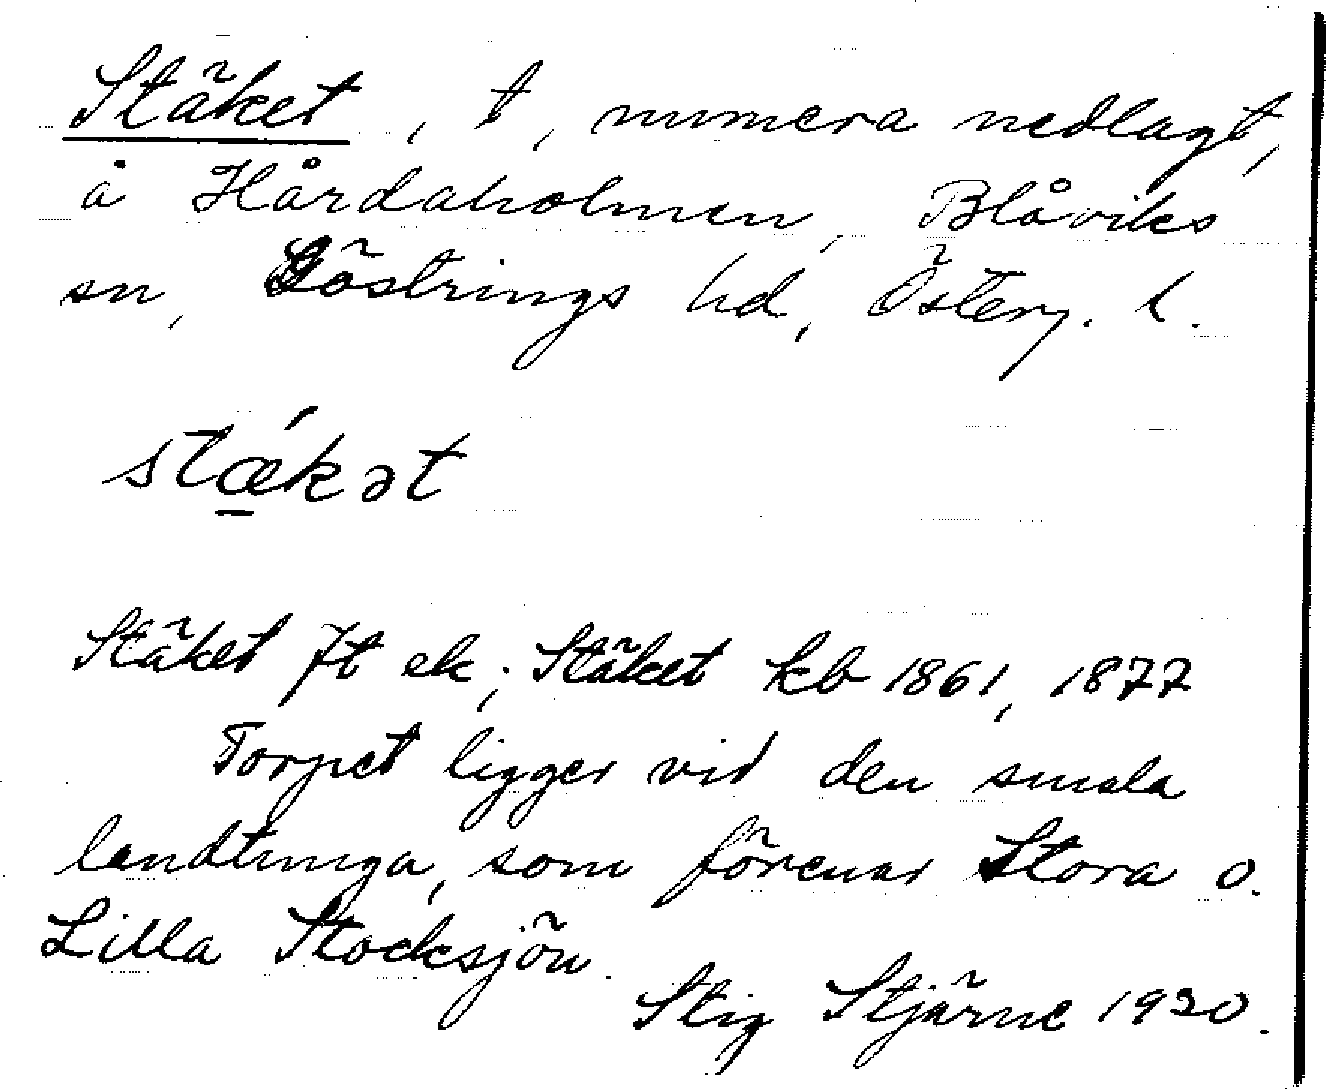 Stäket, t, numera nedlagt,
å Hårdaholmen, Blåviks
sn, Göstrings hd, Österg. l.
stǽ̱kət
Stäket Jt ek; Stäket kb 1861, 1877
Torpet ligger vid den smala
landtunga, som förenar Stora o.
Lilla Stocksjön.
Stig Stjärne 1930.